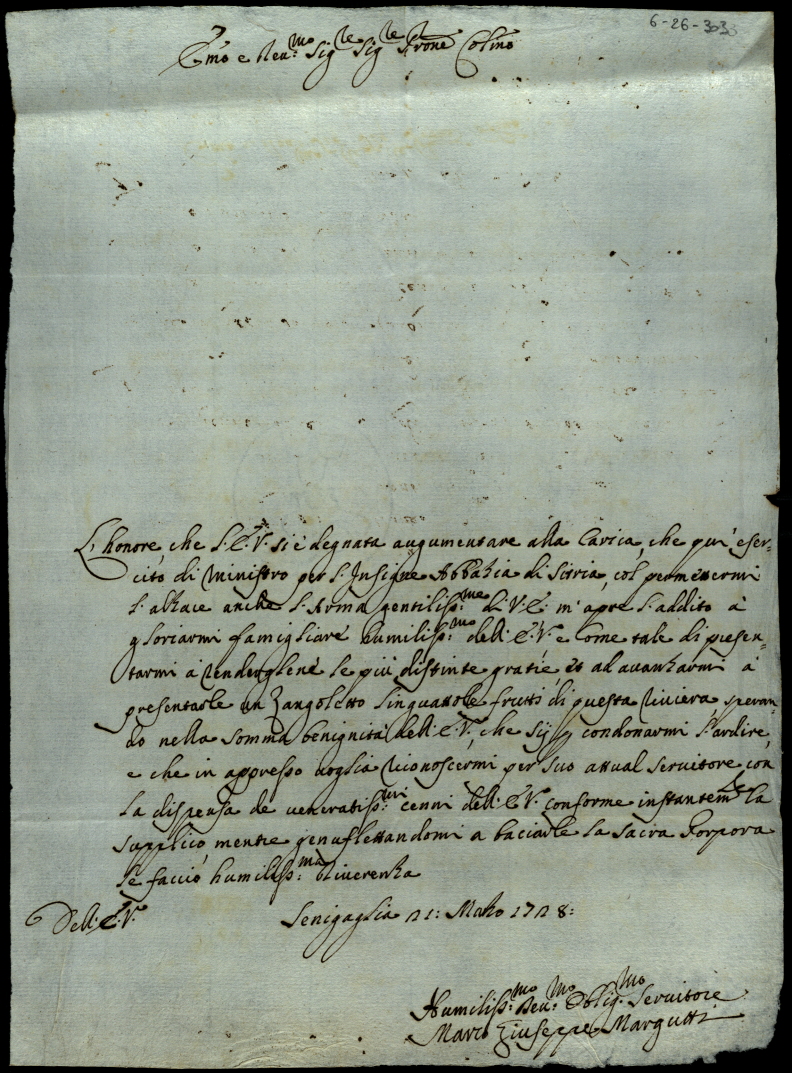 6-26-303
Emo e Reu:mo Sigre Sigre Prone Colmo
L'honore, che l'E.V. si è degnata augumentare alla Carica, che qui eser-
cito di Ministro per l'Insigne Abbazia di Sitria, col permettermi
l'alzare anche l'Arma gentiliss:ma di V.E. m'apre l'addito à
gloriarmi famigliare humiliss:mo dell'E.V. e come tale di presen-
tarmi à renderglene le più distinte gratie et ad auanzarmi à
presentarle un Zangoletto linguattole frutti di questa riuiera, speran-
do nella somma benignità dell'E.V., che sij p condonarmi l'ardire,
e che in appresso uoglia riconoscermi per suo attual seruitore con
la dispensa de ueneratiss:mi cenni dell'E.V. conforme instantemte la
supplico, mentre genuflettandomi a baciarle la sacra Porpora
le faccio humiliss:ma riuerenza
Dell'E.V.
Senigaglia 21: Marzo 1728:
Humiliss:mo Deu:mo Oblig:mo Seruitore
Marco Giuseppe Margutti